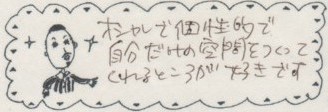 オシャレで個性的で
自分だけの空間をつくって
くれるところが好きです